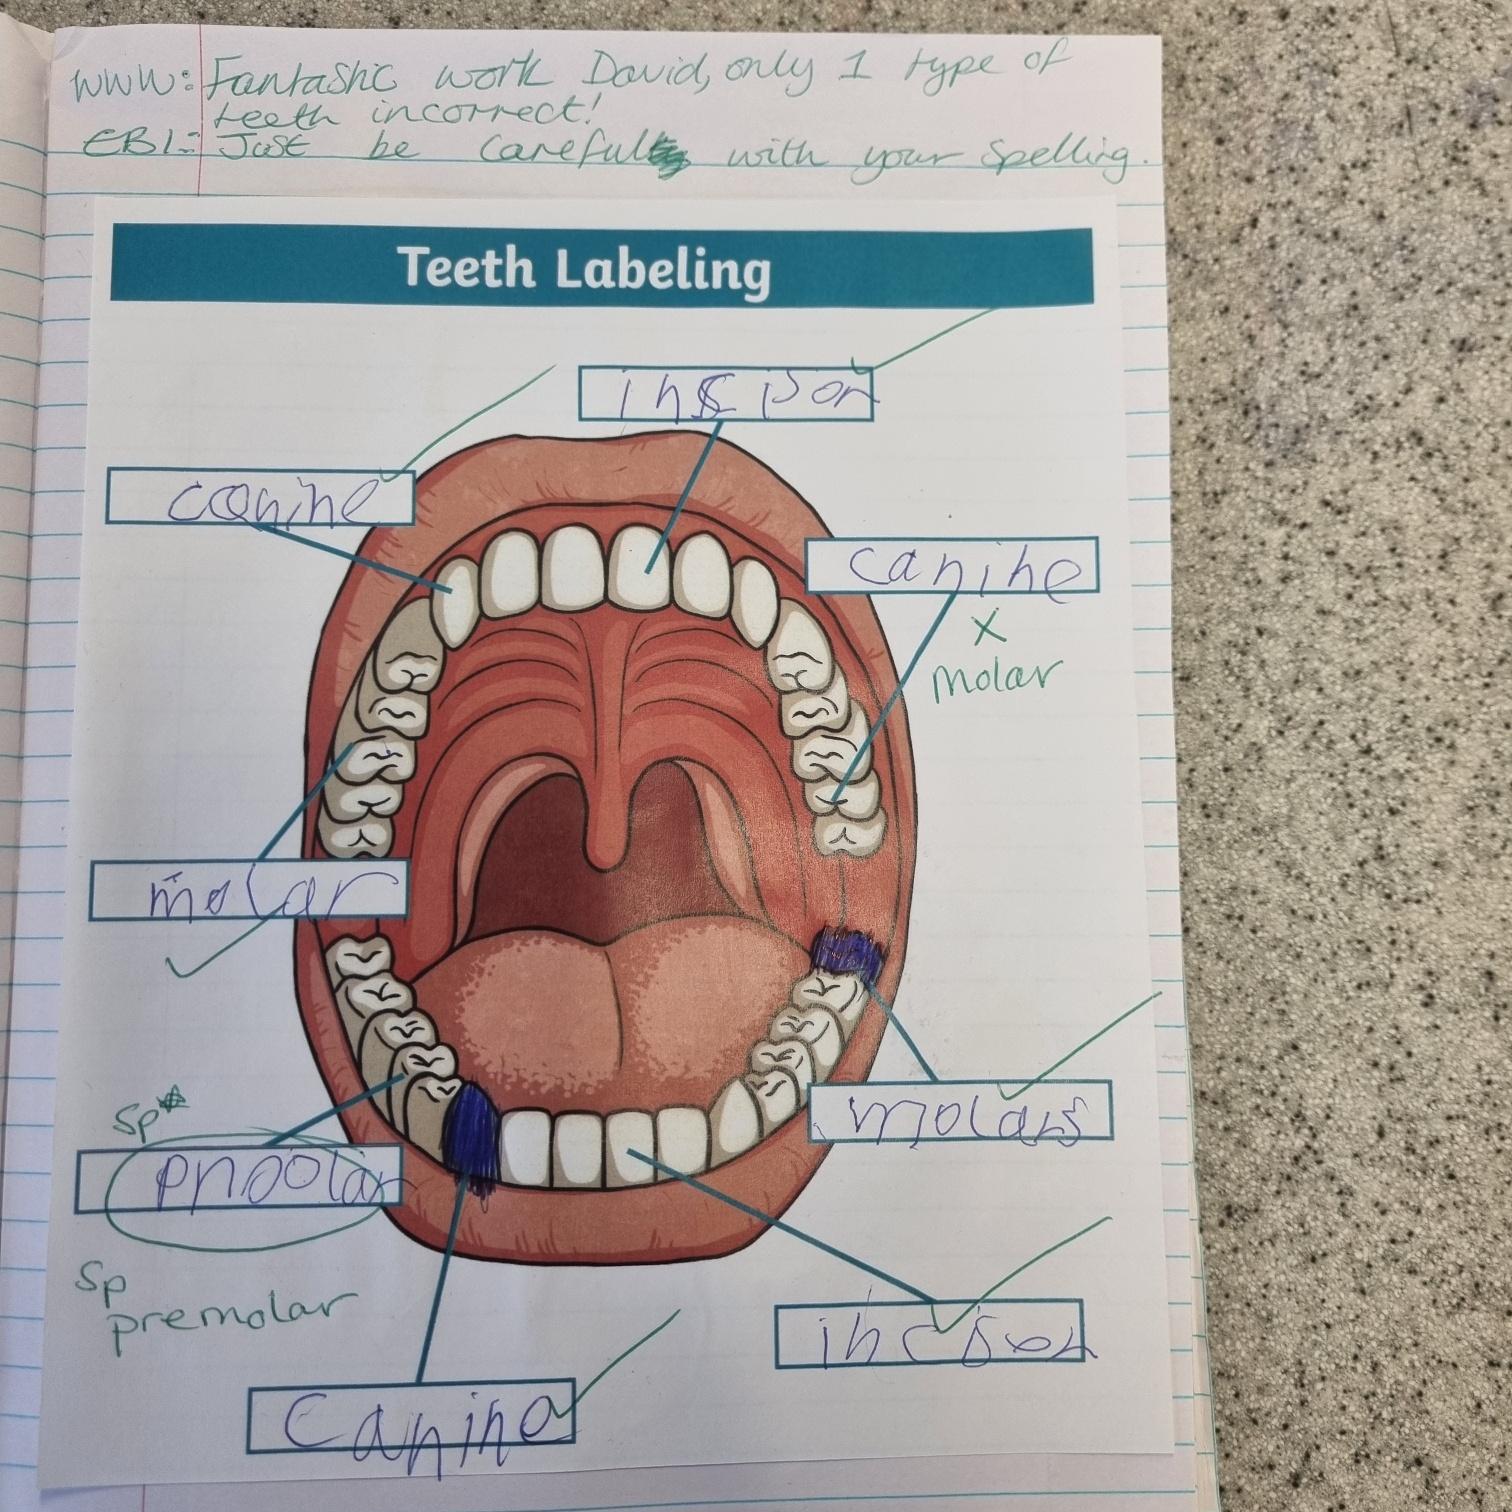 WWW: Fantastic work David, only 1 type of
teeth incorrect!
EBI: Just be careful with your spelling.
Teeth Labeling
incison
canine
canine
x
molar
molar
molars
sp
sp
premolar
incison
Canine